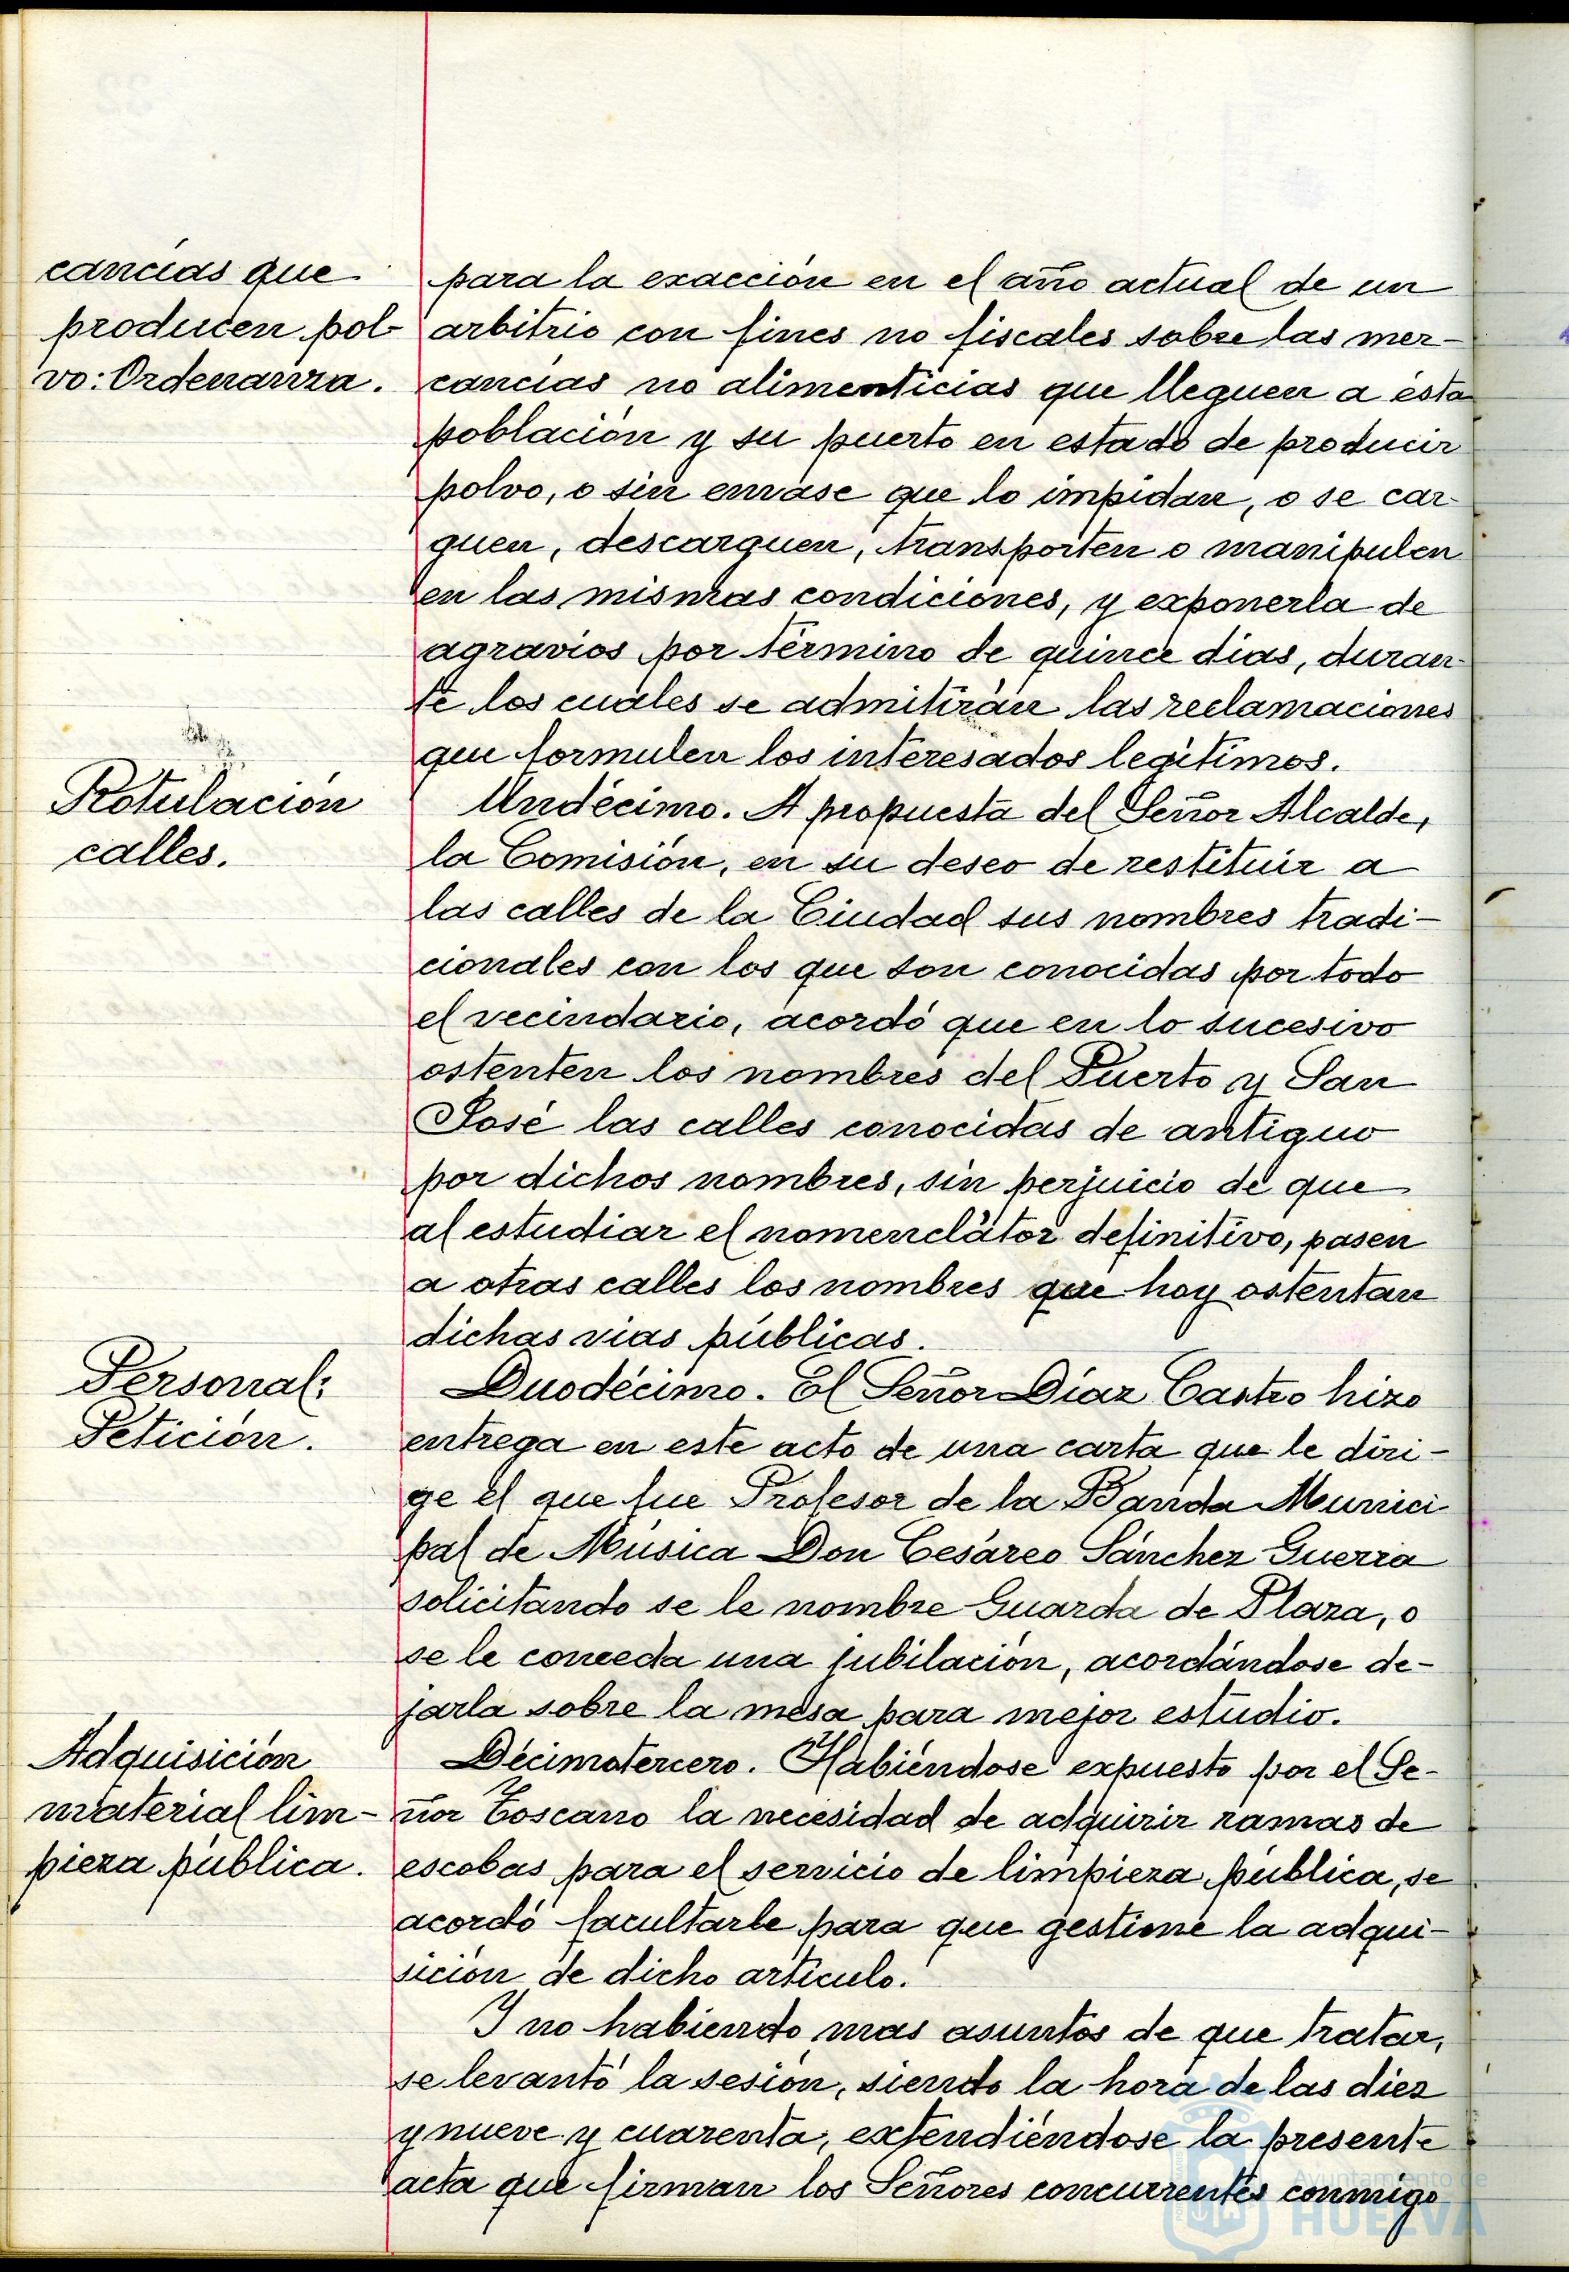 cancias que
producen pol-
vo: Ordenanza.
para la exacción en el año actual de un
arbitrio con fines no fiscales sobre las mer-
cancias no alimenticias que lleguen a ésta
población y su puerto en estado de producir
polvo, o sin envase que lo impidan, o se car-
guen, descarguen, transporten o manipulen
en las mismas condiciones, y exponerla de
agravios por término de quince dias, duran-
te los cuales se admitirán las reclamaciones
que formulen los interesados legítimos.
Rotulación
calles.
Undécimo. A propuesta del Señor Alcalde,
la Comisión, en su deseo de restituir a
las calles de la Ciudad sus nombres tradi-
cionales con los que son conocidas por todo
el vecindario, acordó que en lo sucesivo
ostenten los nombres del Puerto y San
José las calles conocidas de antiguo
por dichos nombres, sin perjuicio de que
al estudiar el nomenclátor definitivo, pasen
a otras calles los nombres que hoy ostentan
dichas vias públicas.
Personal:
Petición.
Duodécimo. El Señor Díaz Castro hizo
entrega en este acto de una carta que le diri-
ge el que fue Profesor de la Banda Munici-
pal de Música Don Cesáreo Sánchez Guerra
solicitando se le nombre Guarda de Plaza, o
se le conceda una jubilación, acordándose de-
jarla sobre la mesa para mejor estudio.
Adquisición
material lim-
pieza pública.
Décimotercero. Habiéndose expuesto por el Se-
ñor Toscano la necesidad de adquirir ramas de
escobas para el servicio de limpieza pública, se
acordó facultarle para que gestione la adqui-
sición de dicho artículo.
Y no habiendo mas asuntos de que tratar,
se levantó la sesión, siendo la hora de las diez
y nueve y cuarenta, extendiéndose la presente
acta que firman los Señores concurrentes conmigo
Ayuntamiento de
HUELVA